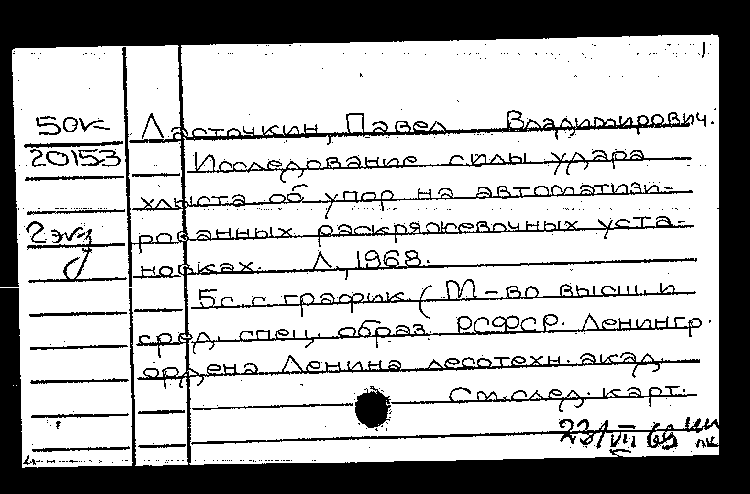 50к Ласточкин, Павел Владимирович.
20153 Исследование силы удара
хлыста об упор на автоматизи-
2 экз рованных раскряжевочных уста-
новках. Л., 1968.
5с. с график (М-во высш. и
сред. спец. образ. РСФСР. Ленингр.
ордена Ленина лесотехн. акад.
См. след. карт.
23/VII 69